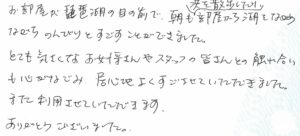 お部屋が琵琶湖の目の前で、湖を散歩したり
朝も部屋から湖をながめ
ながらのんびりとすごすことができました。
とても気さくなお女将さんやスタッフの皆さんとの触れ合い
も心がなごみ居心地よくすごさせていただきました。
また利用させていただきます。
ありがとうございました。